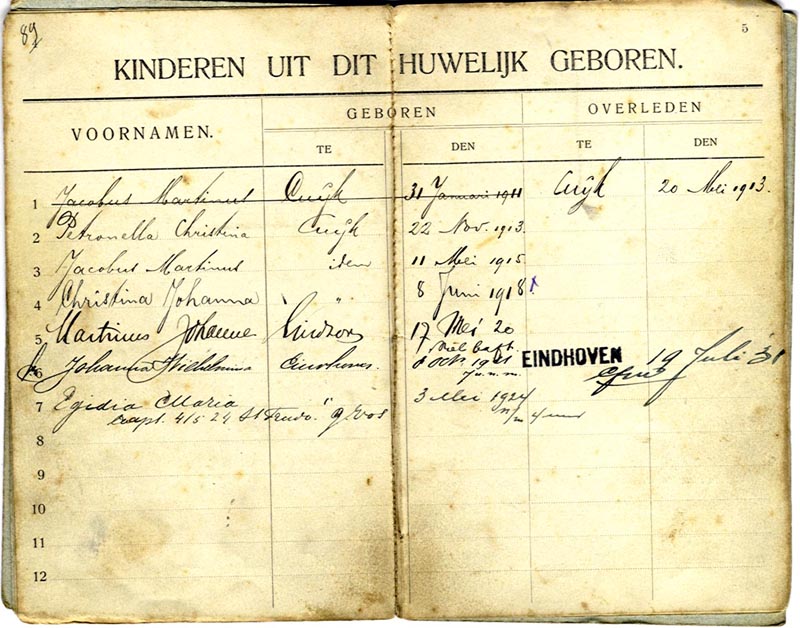 89
5
KINDEREN UIT DIT HUWELIJK GEBOREN.
VOORNAMEN. GEBOREN OVERLEDEN
TE DEN TE DEN
1 Jacobus Martinus Cuijk 31 Januari 1911 Cuijk 20 Mei 1913.
2 Petronella Christina Cuijk 22 Nov. 1913.
3 Jacobus Martinus idem 11 Mei 1915
4 Christina Johanna " " 8 Juni 1918 x
5 Martinus Johannes 17 Mei 20
6 Johanna Wilhelmina Eindhoven. 8 Oct. 1921 EINDHOVEN 19 Juli 31
7 Egidia Maria " 3 Mei 1924
4/5 24 St
8
9
10
11
12